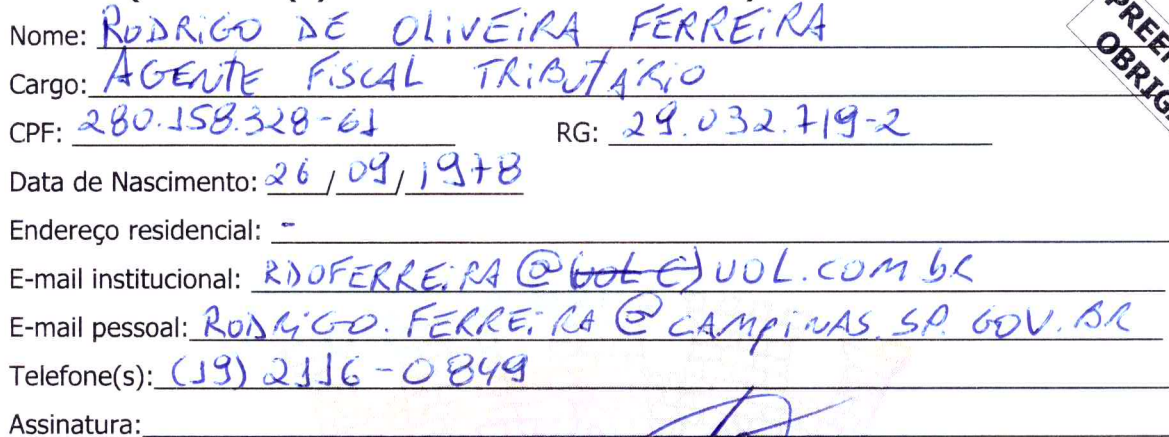 Nome: RODRIGO DE OLIVEIRA FERREIRA
Cargo: AGENTE FISCAL TRIBUTÁRIO
CPF: 280.158.328-61 RG: 29.032.719-2
Data de Nascimento: 26 / 09 / 1978
Endereço residencial: -
E-mail institucional: RDOFERREIRA @ UOL.COM.BR
E-mail pessoal: RODRIGO.FERREIRA@CAMPINAS.SP.GOV.BR
Telefone(s): (19) 2116-0849
Assinatura: